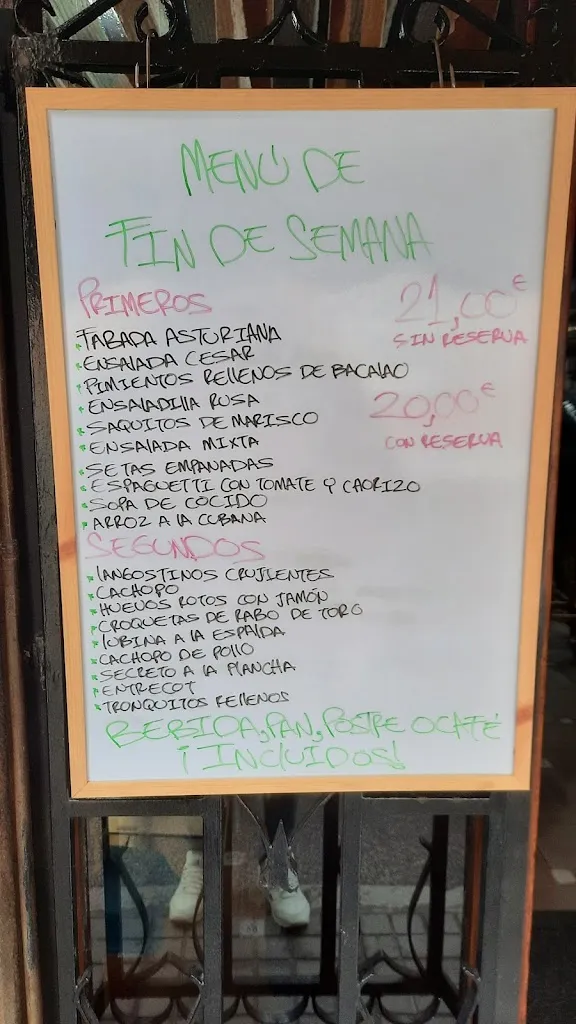 MENÚ DE
FIN DE SEMANA
PRIMEROS
21,00€
SIN RESERVA
FABADA ASTURIANA
ENSALADA CESAR
PIMIENTOS RELLENOS DE BACALAO
ENSALADILLA RUSA
20,00€
CON RESERVA
SAQUITOS DE MARISCO
ENSALADA MIXTA
SETAS EMPANADAS
ESPAGUETTI CON TOMATE Y CHORIZO
SOPA DE COCIDO
ARROZ A LA CUBANA
SEGUNDOS
LANGOSTINOS CRUJIENTES
CACHOPO
HUEVOS ROTOS CON JAMÓN
CROQUETAS DE RABO DE TORO
LUBINA A LA ESPALDA
CACHOPO DE POLLO
SECRETO A LA PLANCHA
ENTRECOT
TRONQUITOS RELLENOS
BEBIDA, PAN, POSTRE O CAFÉ
¡INCLUIDOS!